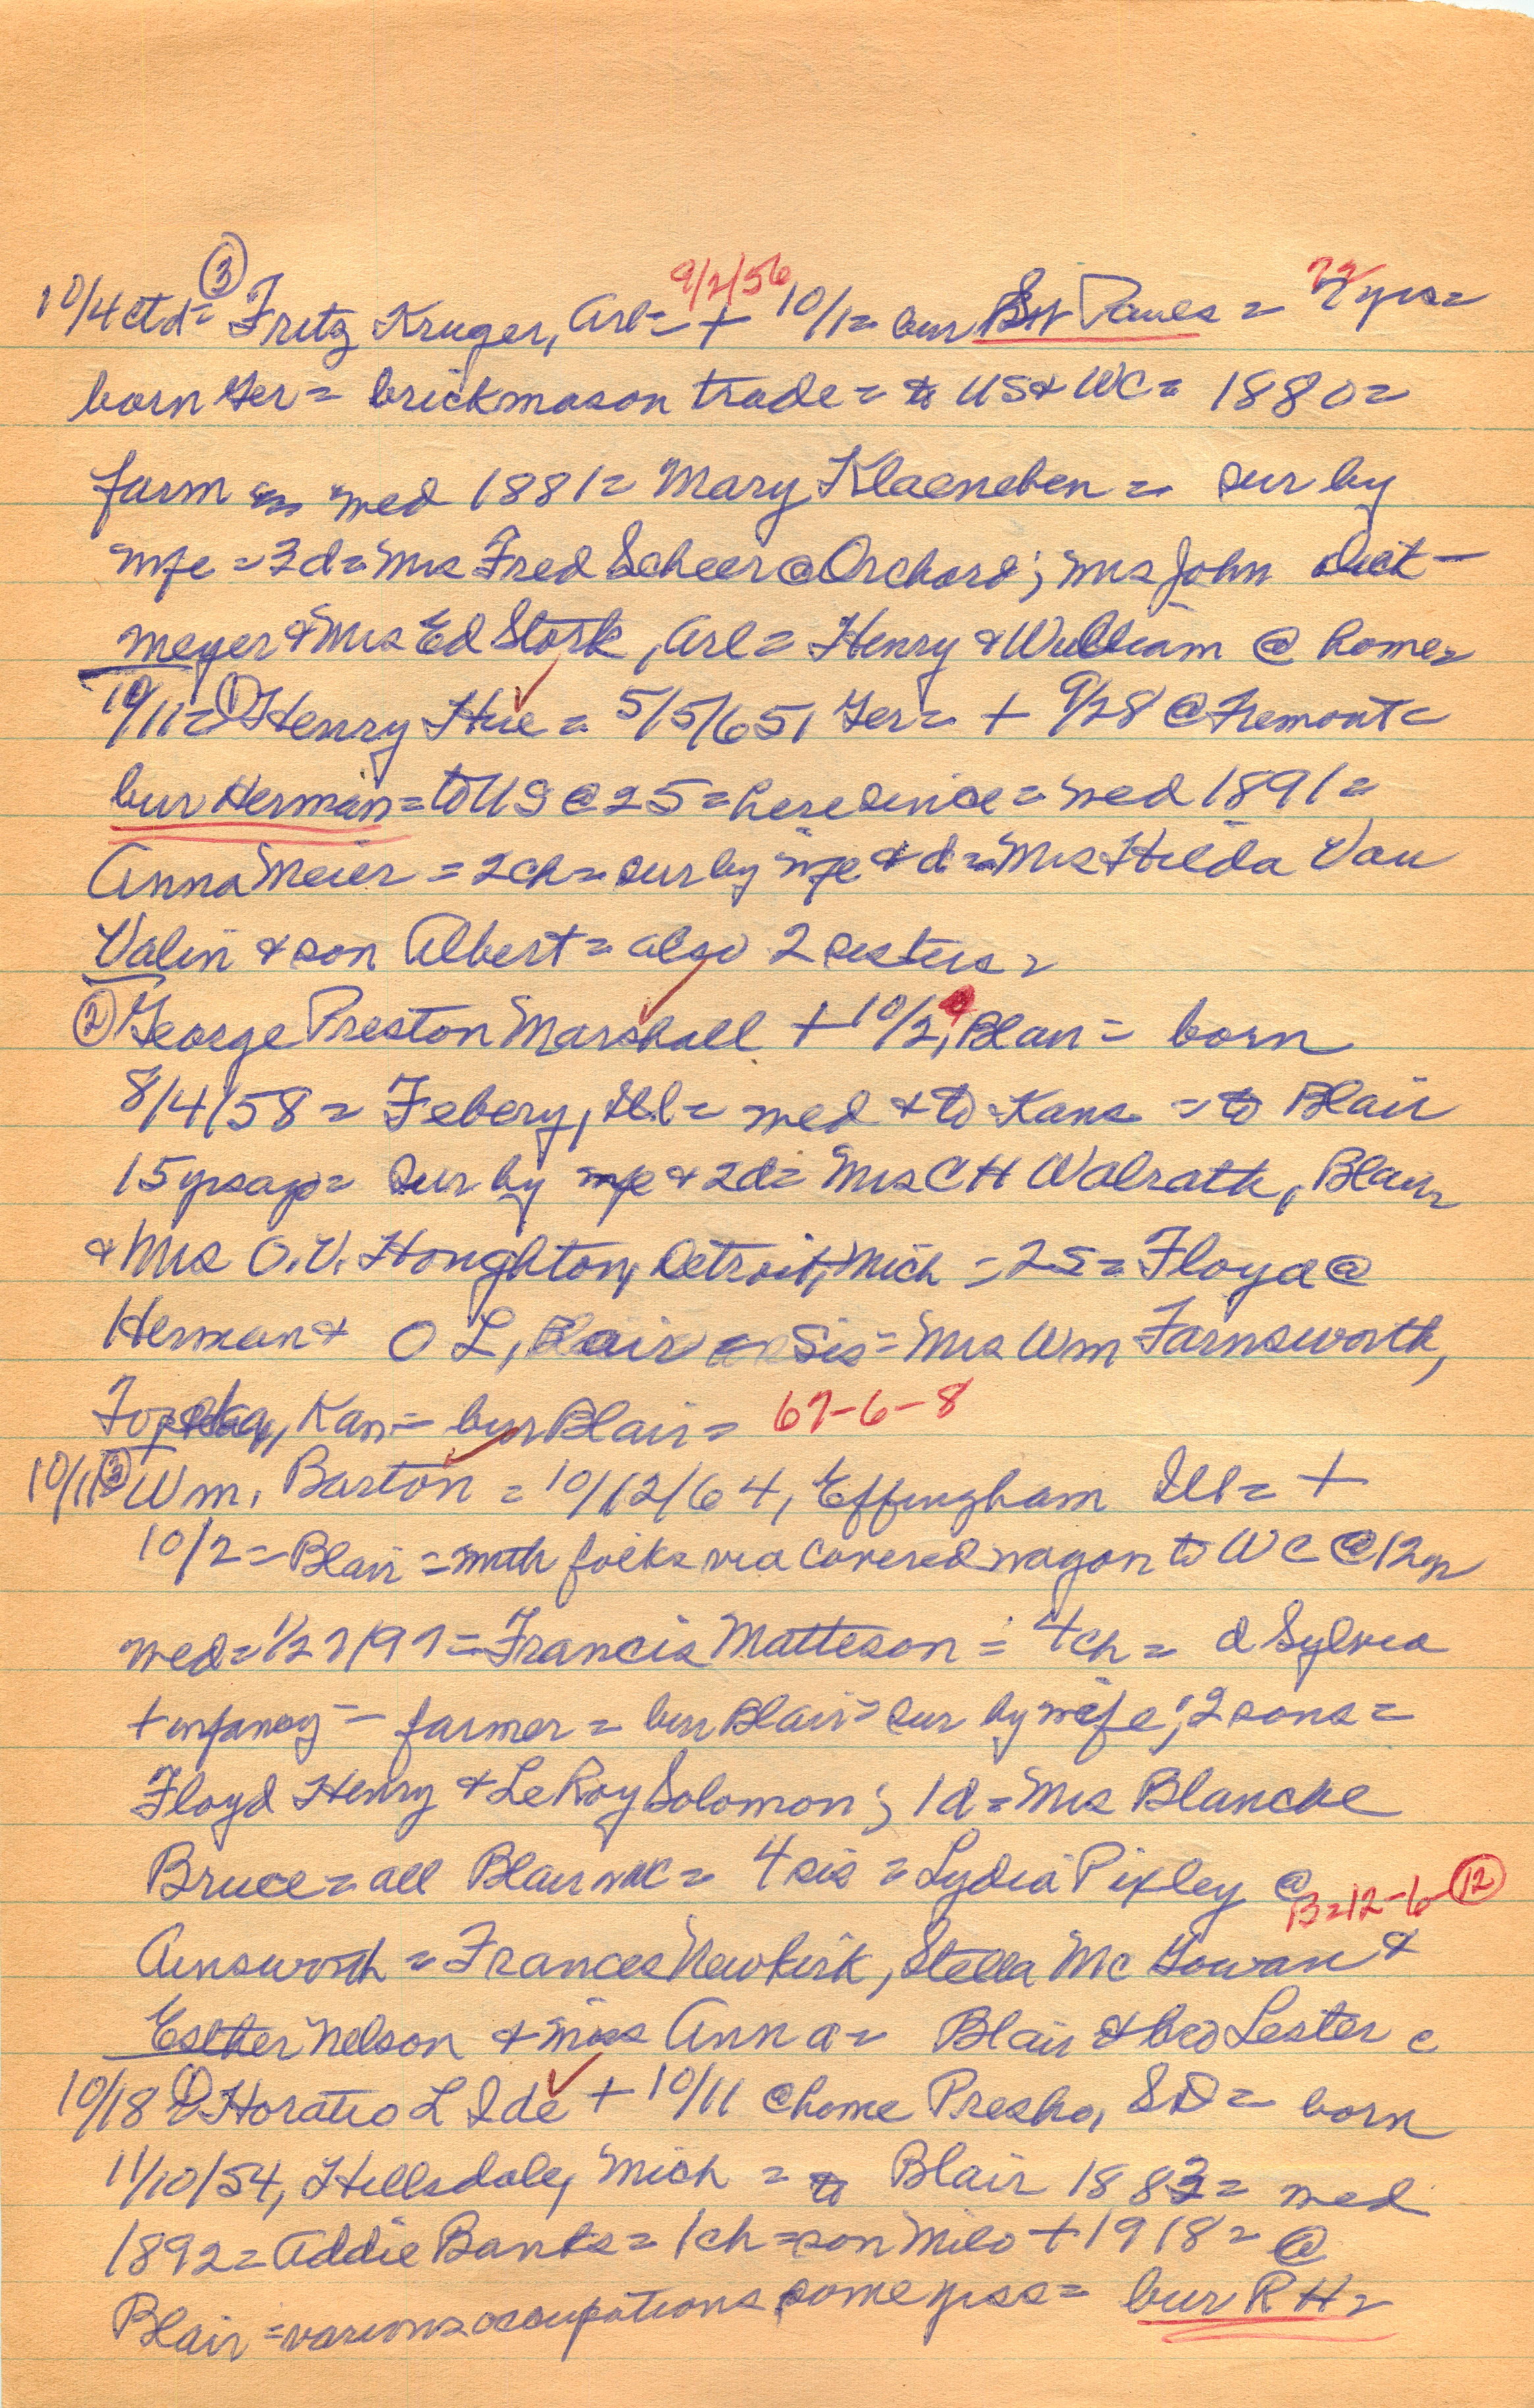 ③
9/2/56
72
10/4 ctd = Fritz Kruger, Arl = + 10/1 = bur St Pauls = yrs =
born Ger = brickmason trade = to US & WC = 1880 =
farm = wed 1881 = Mary Klaeneben = sur by
wife = 3d = Mrs Fred Scheer @ Orchard; Mrs John Dick-
meyer & Mrs Ed Stork, Arl = Henry & William @ home =
10/11 = ① Henry Hue = 5/5/651 Ger = + 9/28 @ Fremont =
bur Herman = to US @ 25 = here since = wed 1891 =
Anna Meier = 2 ch = sur by wife & d = Mrs Hilda Van
Valin & son Albert = also 2 sisters =
② George Preston Marshall + 10/2, Blair = born
8/4/58 = Febery, Ill = wed & to Kans = to Blair
15 yrs ago = sur by wife & 2d = Mrs C H Walrath, Blair
& Mrs O.V. Houghton, Detroit, Mich = 2S = Floyd @
Herman & O L, Blair = Sis = Mrs Wm Farnsworth,
Topeka, Kan = bur Blair = 67-6-8
10/11 ③ Wm. Barton = 10/12/64, Effingham Ill = +
10/2 = Blair = with folks via covered wagon to WC @ 12 yr
wed = 1/27/97 = Francis Matteson = 4 ch = d Sylvia
+ infancy = farmer = bur Blair = sur by wife; 2 sons =
Floyd Henry & LeRoy Solomon; 1d = Mrs Blanche
Bruce = all Blair = 4 sis = Lydia Pixley @
B=12-6-⑫
Ainsworth = Frances Newkirk, Stella McGowan &
Esther Nelson & miss Anna = Blair & bro Lester
10/18 ① Horatio L Ide + 10/11 @ home Presho, SD = born
11/10/54, Hillsdale, Mich = to Blair 1883 = wed
1892 = Addie Banks = 1 ch = son Milo + 1918 = @
Blair = various occupations some yrs = bur R H =